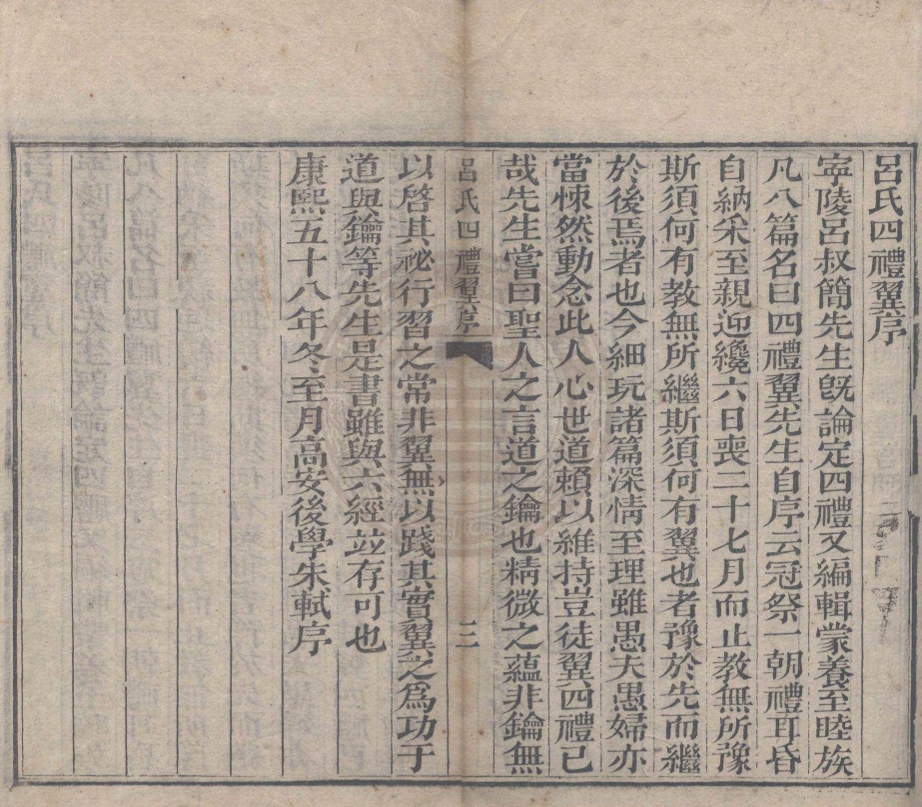 呂氏四禮翼序
寧陵呂叔簡先生旣論定四禮又編輯蒙養至睦族
凡八篇名曰四禮翼先生自序云冠祭一朝禮耳昏
自納采至親迎纔六日喪二十七月而止教無所豫
斯須何有教無所繼斯須何有翼也者豫於先而繼
於後焉者也今細玩諸篇深情至理雖愚夫愚婦亦
當悚然動念此人心世道賴以維持豈徒翼四禮已
哉先生嘗曰聖人之言道之鑰也精微之蘊非鑰無
呂氏四禮翼序
三
以啓其祕行習之常非翼無以踐其實翼之爲功于
道與鑰等先生是書雖與六經竝存可也
康熙五十八年冬至月高安後學朱軾序